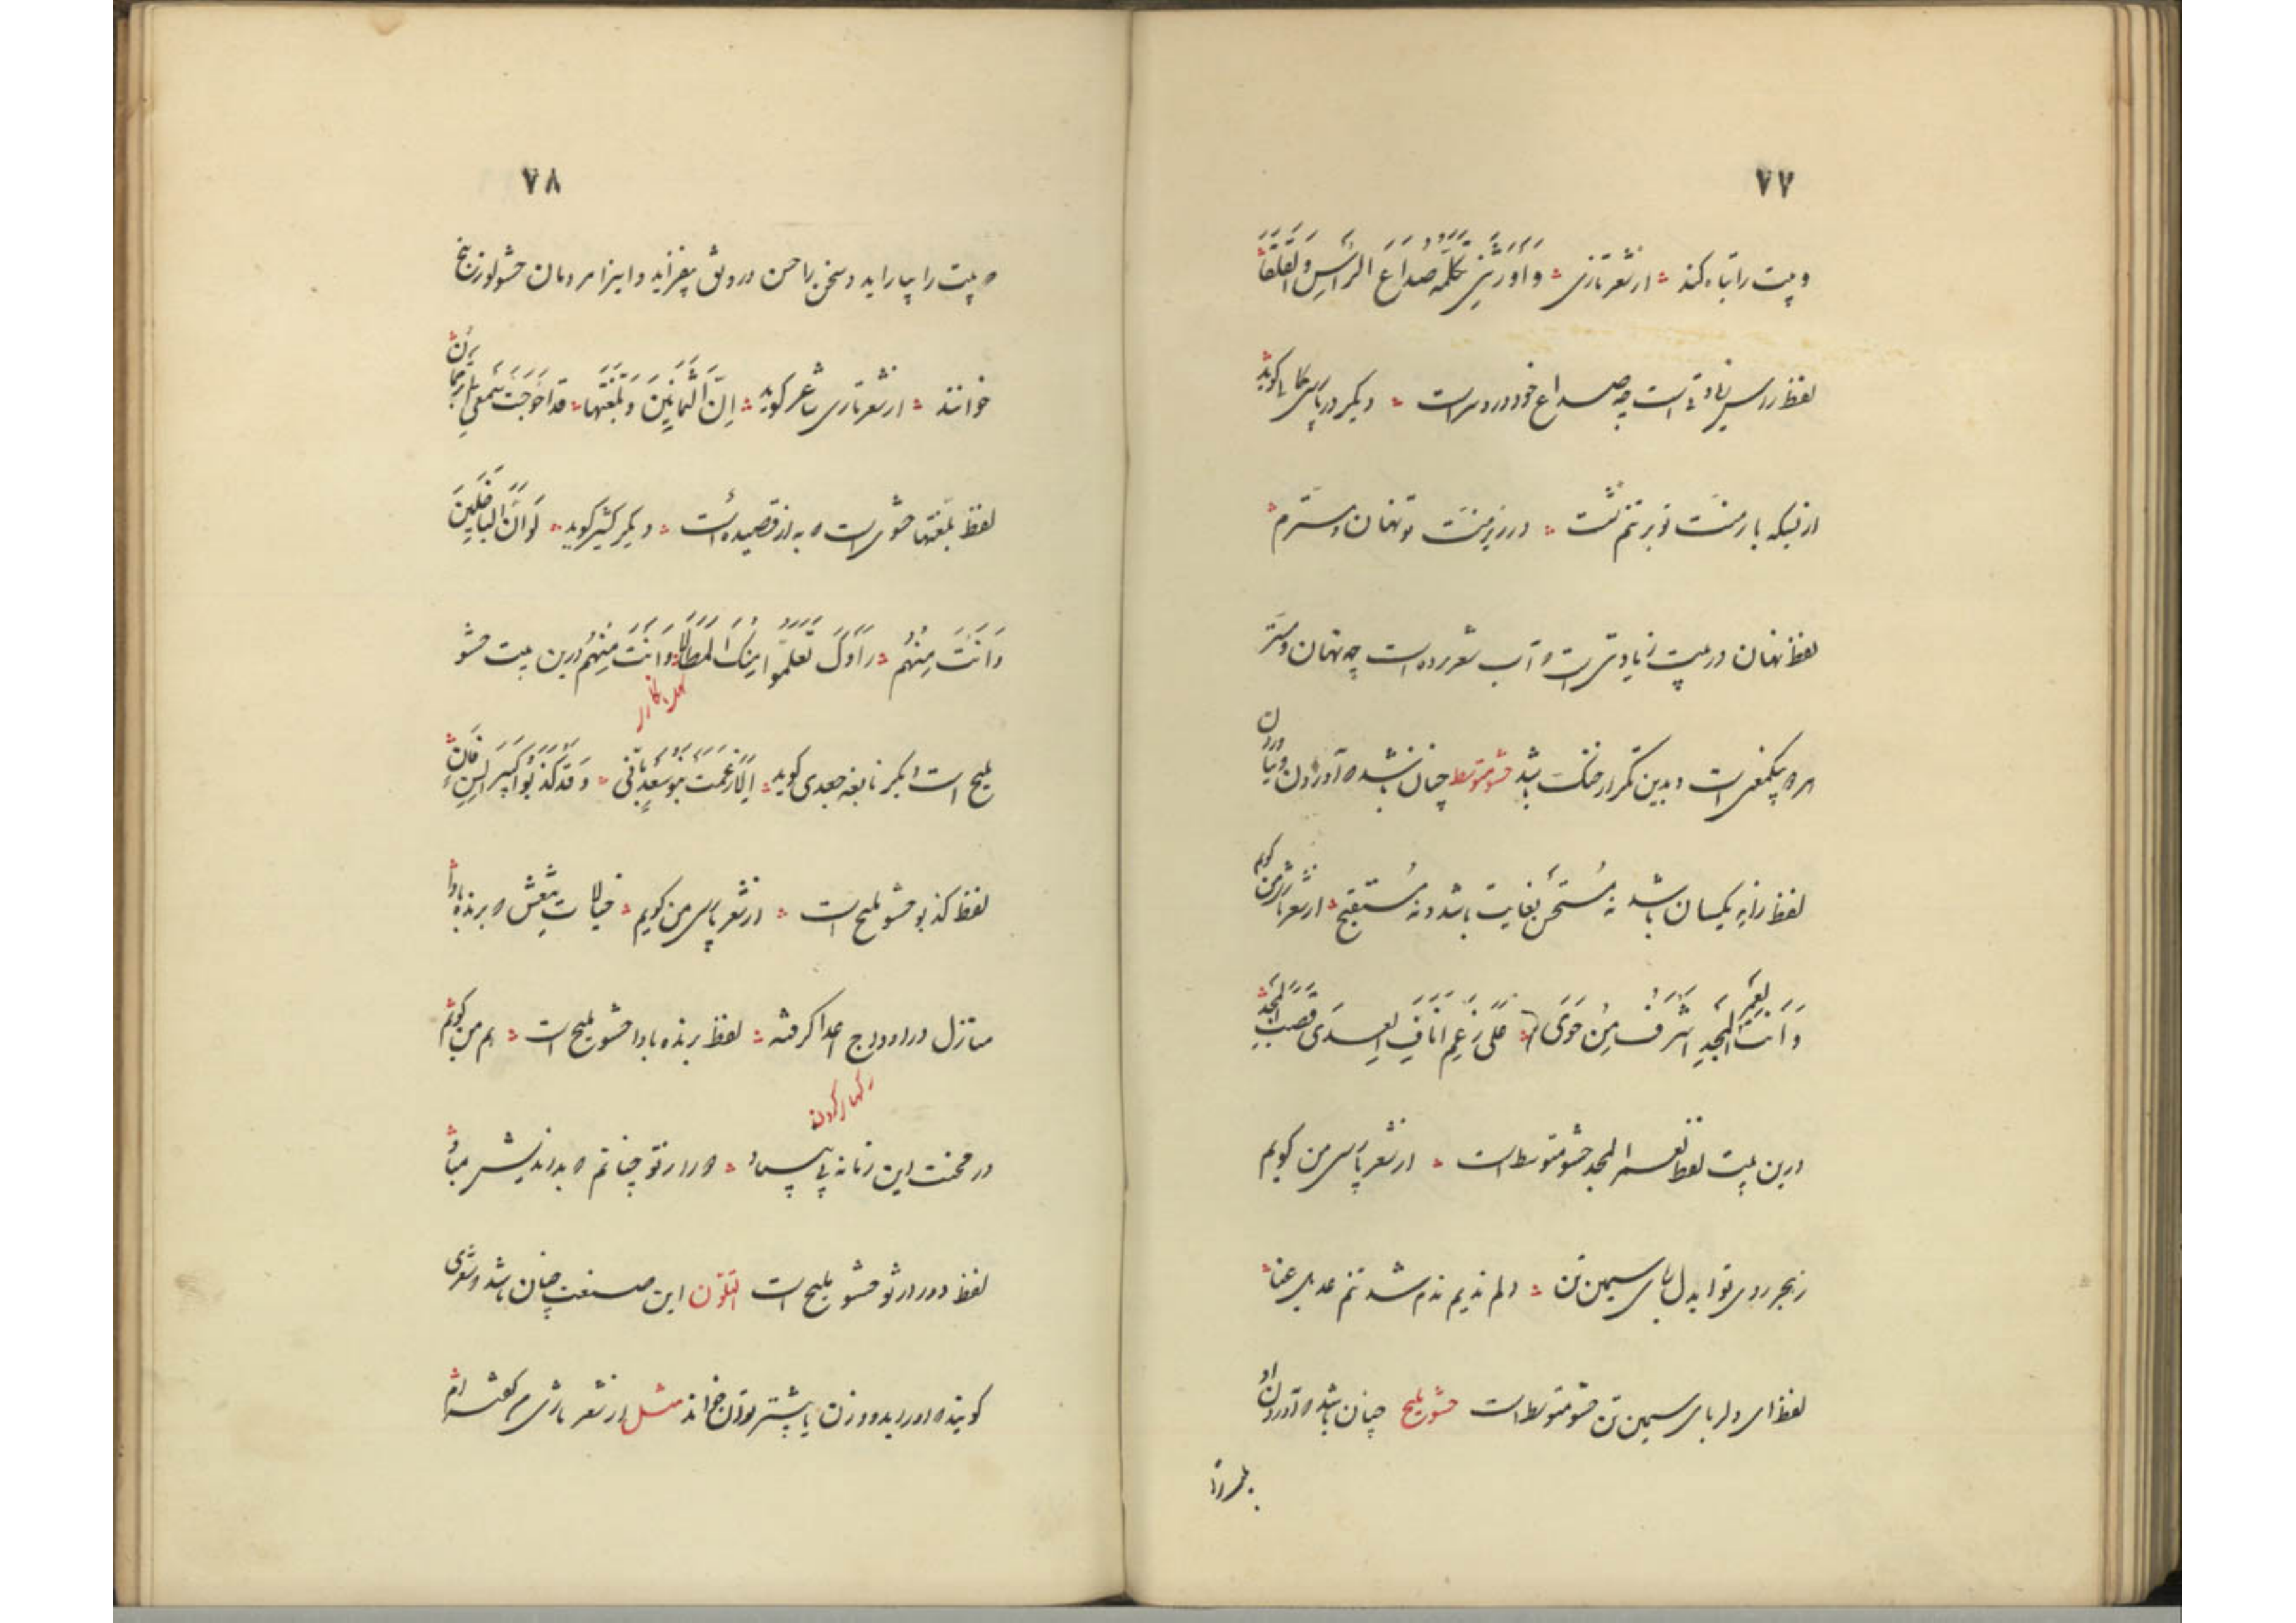 ٧٧
و بیت را تباه کند از شعر تازی وَاَورَثَنی تکلّمه صُداعَ الرأسِ وَالقَلَقا
لفظ راس زیادتی است چه صداع خود درد سر است دیگر در پارسی کوید
از بسکه بار منت تو بر تنم نشست در زیر منت تو نهان و مسترم
لفظ نهان در بیت زیادتی است و آب شعر برده است چه نهان و مستتر
هر دو یکمعنی است و بدین تکرار خنک باشد حشو متوسط چنان باشد که آوردن و نیاوردن
لفظ زاید یکسان باشد نه مُستحسن بغایت باشد و نه مُستقبح از شعر تازی من کویم
وَ اَنتَ لَعَمرُ المَجدِ اَشرَفُ مَن حَوَی عَلی رَغمِ آنافِ العِدَی قَصَبَ المَجدِ
درین بیت لفظ لعمر المجد حشو متوسط است از شعر پارسی من کویم
ز هجر روی تو ای دلربای سیمین تن دلم ندیم ندم شد تنم عدیل عنا
لفظ ای دلربای سیمین تن حشو متوسط است حشو ملیح چنان باشد که آوردن او
٧٨
که بیت را بیاراید و سخن را حسن و رونق بیفزاید و این را مردمان حشو لوزینج
خوانند از شعر تازی شاعر کوید اِنَّ الثَّمانینَ وَ بُلِّغتَها قَد اَحوَجَت سَمعی اِلی تَرجُمان
لفظ بلّغتها حشوی است که به از قصیده است دیگر کثیر کوید لَو اَنَّ الباخِلینَ
وَ اَنتَ مِنهُم رَاَوکَ تَعَلَّمُوا مِنکَ المِطالا وَ اَنتَ مِنهُم درین بیت حشو
ملیح است دیگر نابغه جعدی کوید اَلا زَعَمَت بَنُو سَعدٍ بِاَنّی وَ قَد کَذَبُوا کَبیرُ السِنِّ فانٍ
لفظ کذبوا حشو ملیح است از شعر پارسی من کویم خیالات تیغش که برنده بادا
منازل در ارواح اعدا گرفته لفظ برنده بادا حشو ملیح است هم من کویم
در محنت این زمانه بی فریاد دور از تو چنانم که بداندیش مباد
لفظ دور از تو حشو ملیح است المتلوّن این صنعت چنان باشد که شعری
کوینده آورد که بدو وزن یا بیشتر بتوان خواند مثل از شعر تازی کفته ام